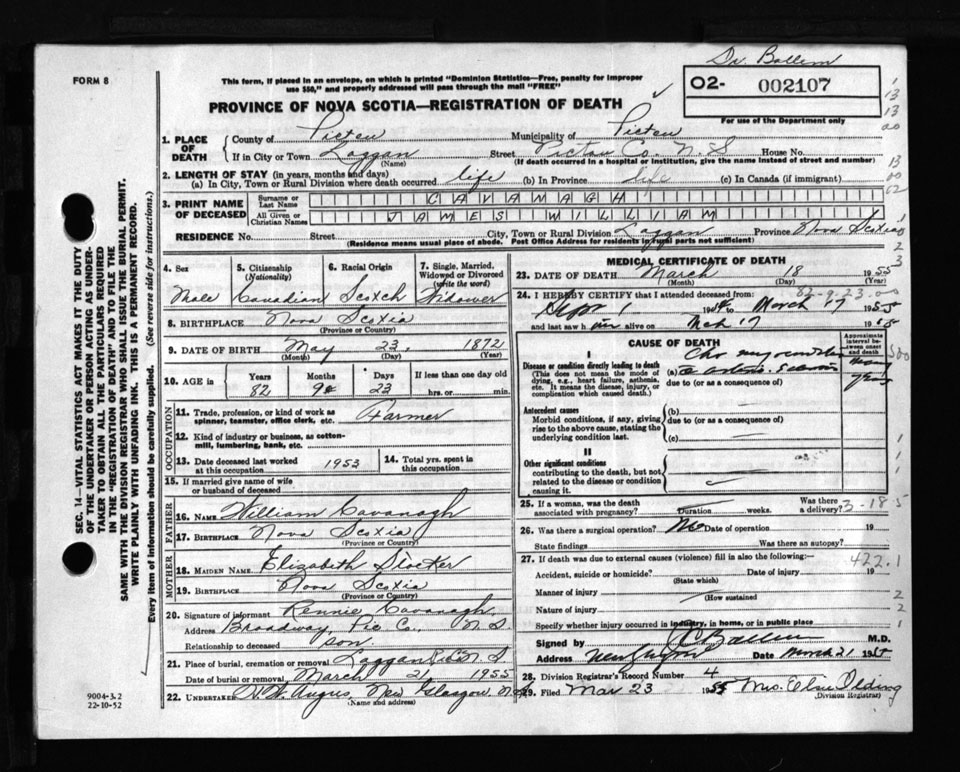 Dr. Ballem
FORM 8
This form, if placed in an envelope, on which is printed "Dominion Statistics—Free, penalty for improper
use $50," and properly addressed will pass through the mail "FREE"
02- 002107
For use of the Department only
PROVINCE OF NOVA SCOTIA—REGISTRATION OF DEATH
1. PLACE OF DEATH
County of Pictou Municipality of Pictou
If in City or Town Laggan Street Pictou Co. N. S House No.
(Name) (If death occurred in a hospital or institution, give the name instead of street and number)
2. LENGTH OF STAY (in years, months and days)
(a) In City, Town or Rural Division where death occurred life (b) In Province life (c) In Canada (if immigrant)
3. PRINT NAME OF DECEASED
Surname or Last Name CAVANAGH
All Given or Christian Names JAMES WILLIAM
RESIDENCE No. Street City, Town or Rural Division Laggan Province Nova Scotia
(Residence means usual place of abode. Post Office Address for residents in rural parts not sufficient)
4. Sex Male
5. Citizenship (Nationality) Canadian
6. Racial Origin Scotch
7. Single, Married, Widowed or Divorced (write the word) Widower
8. BIRTHPLACE Nova Scotia
(Province or Country)
9. DATE OF BIRTH May 23, 1872
(Month) (Day) (Year)
10. AGE in Years Months Days If less than one day old
82 9 23 hrs. or min.
OCCUPATION
11. Trade, profession, or kind of work as
spinner, teamster, office clerk, etc. Farmer
12. Kind of industry or business, as cotton-
mill, lumbering, bank, etc.
13. Date deceased last worked
at this occupation 1953
14. Total yrs. spent in
this occupation
15. If married give name of wife
or husband of deceased
FATHER
16. Name William Cavanagh
17. Birthplace Nova Scotia
(Province or Country)
MOTHER
18. Maiden Name Elizabeth
19. Birthplace Nova Scotia
(Province or Country)
20. Signature of informant Kennie Cavanagh
Address Broadway, Pic Co., N. S
Relationship to deceased son
21. Place of burial, cremation or removal Laggan N. S
Date of burial or removal March 21 1955
22. Undertaker Angus, New Glasgow N. S
(Name and address)
MEDICAL CERTIFICATE OF DEATH
23. DATE OF DEATH March 18 1955
(Month) (Day) (Year)
82-9-23-00
24. I HEREBY CERTIFY that I attended deceased from:
Sept 1 to March 17 1955
and last saw h im alive on Mch 17
CAUSE OF DEATH
Approximate interval between onset and death
I
Disease or condition directly leading to death
(This does not mean the mode of
dying, e.g., heart failure, asthenia,
etc. It means the disease, injury, or
complication which caused death.)
(a)
many years
due to (or as a consequence of)
Antecedent causes
Morbid conditions, if any, giving
rise to the above cause, stating the
underlying condition last.
(b)
due to (or as a consequence of)
(c)
II
Other significant conditions
contributing to the death, but not
related to the disease or condition
causing it.
25. If a woman, was the death
associated with pregnancy? Duration weeks. Was there a delivery?
3-18-5
26. Was there a surgical operation? No Date of operation 19
State findings Was there an autopsy?
27. If death was due to external causes (violence) fill in also the following:
422.1
Accident, suicide or homicide? Date of injury 19
(State which)
Manner of injury
(How sustained
Nature of injury
Specify whether injury occurred in industry, in home, or in public place
Signed by Ballem M.D.
Address New Glasgow Date March 21
28. Division Registrar's Record Number 4
29. Filed Mar 23 1955 Mrs. Elsie Olding
(Division Registrar)
SEC. 14—VITAL STATISTICS ACT MAKES IT THE DUTY
OF THE UNDERTAKER OR PERSON ACTING AS UNDER-
TAKER TO OBTAIN ALL THE PARTICULARS REQUIRED
IN THE "REGISTRATION OF DEATH" AND TO FILE THE
SAME WITH THE DIVISION REGISTRAR WHO SHALL ISSUE THE BURIAL PERMIT.
WRITE PLAINLY WITH UNFADING INK. THIS IS A PERMANENT RECORD.
Every item of information should be carefully supplied. (See reverse side for instructions.)
9004-3.2
22-10-52